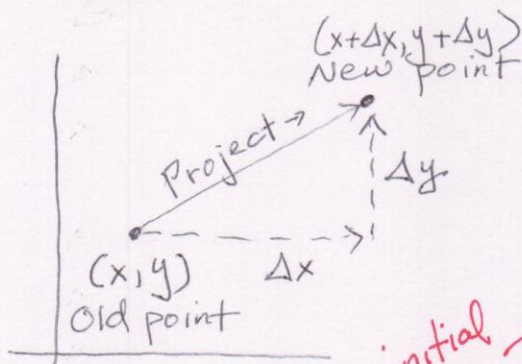 (x+Δx, y+Δy)
New point
Project →
Δy
(x, y)
Δx
Old point
initial